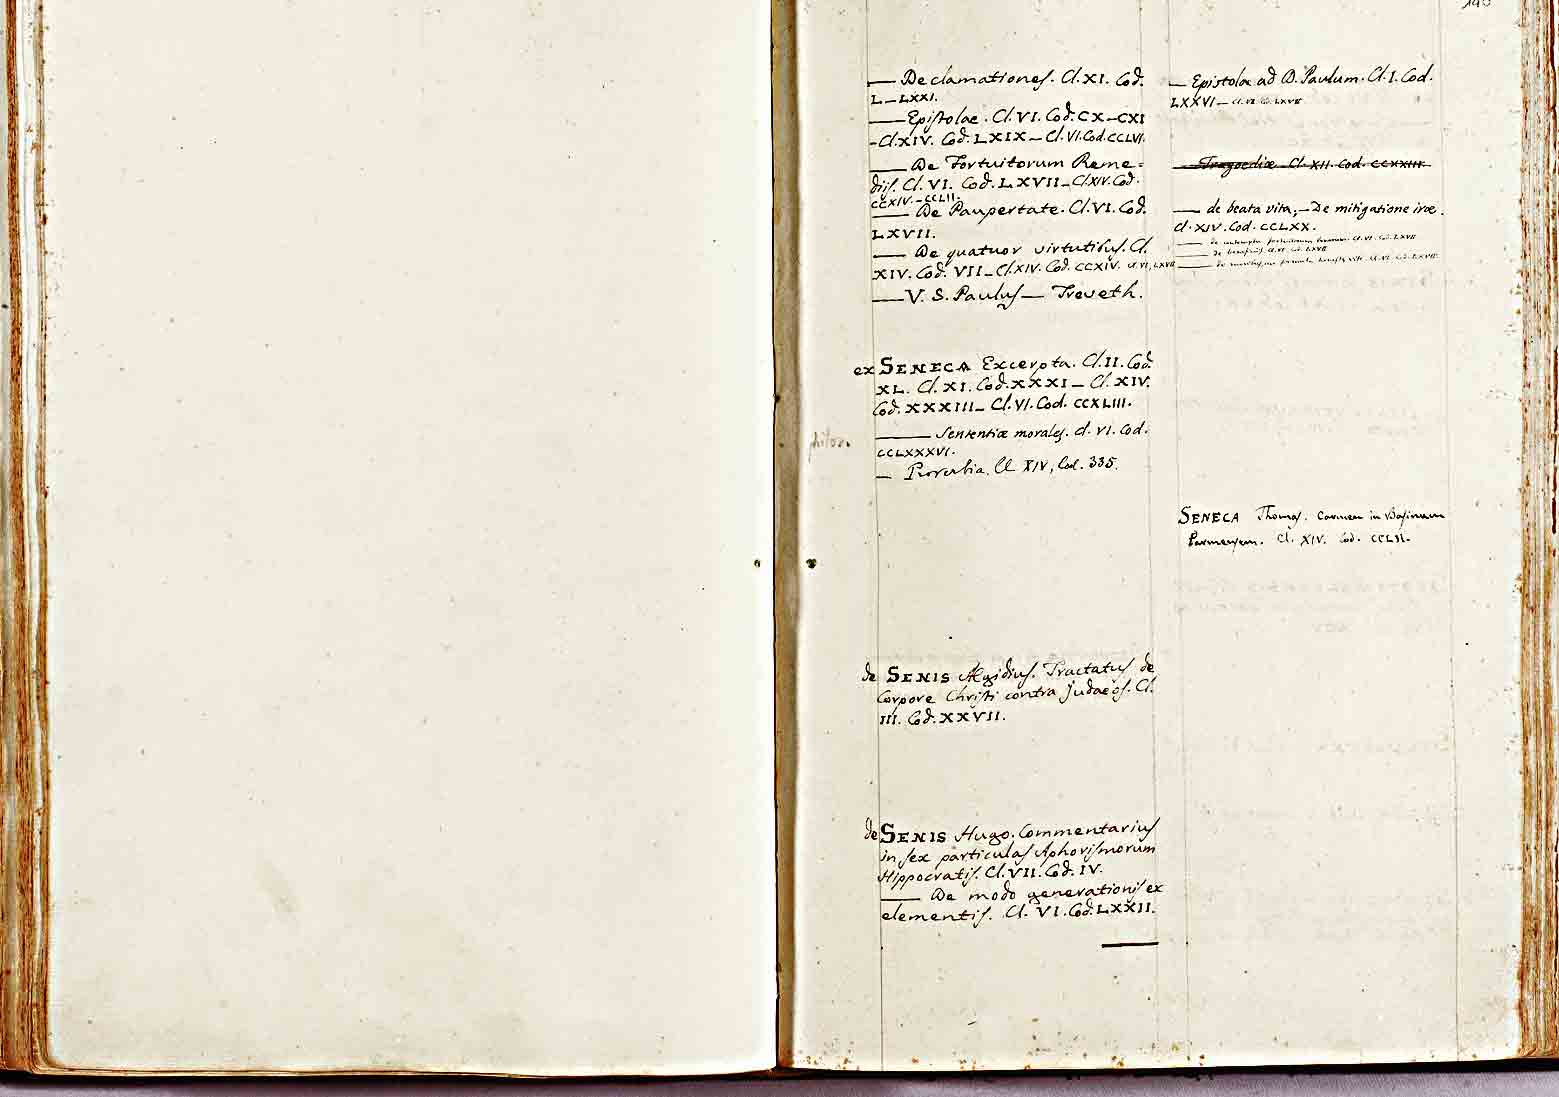 — Declamationes. Cl. XI. Cod.
L — LXXI.
— Epistolae. Cl. VI. Cod. CX — CXI
- Cl. XIV. Cod. LXIX — Cl. VI. Cod. CCLVI.
— De Fortuitorum Reme=
diis. Cl. VI. Cod. LXVII — Cl. XIV. Cod.
CCXIV. — CCLII.
— De Paupertate. Cl. VI. Cod.
LXVII.
— De quatuor virtutibus. Cl.
XIV. Cod. VII — Cl. XIV. Cod. CCXIV. Cl. VI, LXVII
— V. S. Paulus — Treveth.
ex SENECA Excerpta. Cl. II. Cod.
XL. Cl. XI. Cod. XXXI — Cl. XIV.
Cod. XXXIII — Cl. VI. Cod. CCXLIII.
— Sententiæ morales. Cl. VI. Cod.
CCLXXXVI.
philos.
— Proverbia. Cl XIV, Cod. 335.
de SENIS Ægidius. Tractatus de
Corpore Christi contra judaeos. Cl.
III. Cod. XXVII.
de SENIS Hugo. Commentarius
in sex particulas Aphorismorum
Hippocratis. Cl. VII. Cod. IV.
— De modo generationis ex
elementis. Cl. VI. Cod. LXXII.
— Epistolæ ad D. Paulum. Cl. I. Cod.
LXXVI — Cl. VI. Co. LXVII
— Tragoediæ Cl. XII. Cod. CCXXIII.
— de beata vita, — De mitigatione iræ.
Cl. XIV. Cod. CCLXX.
— de Cl. VI. Cod. LXVII
— de beneficiis. Cl. VI. Cod. LXVII
— de formula honestæ vitæ. Cl. VI. Cod. LXVII.
SENECA Thomas. Carmen in Basinum
Parmensem. Cl. XIV. Cod. CCLII.